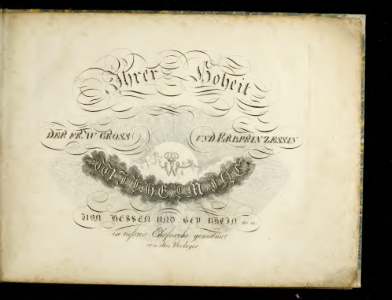 Ihrer Hoheit
DER FRAU GROSS UND ERBPRINZESSIN
WILHELMINE
VON HESSEN UND BEY RHEIN etc. etc.
in tiefster Ehrfurcht gewidmet
von dem Verleger